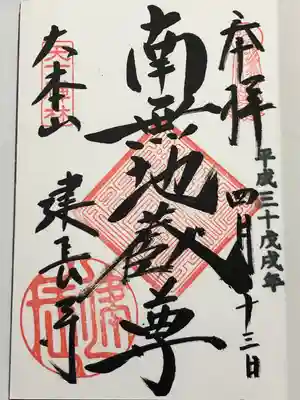 奉拝
平成三十戊戌年
四月二十三日
南無地蔵尊
大本山
建長寺